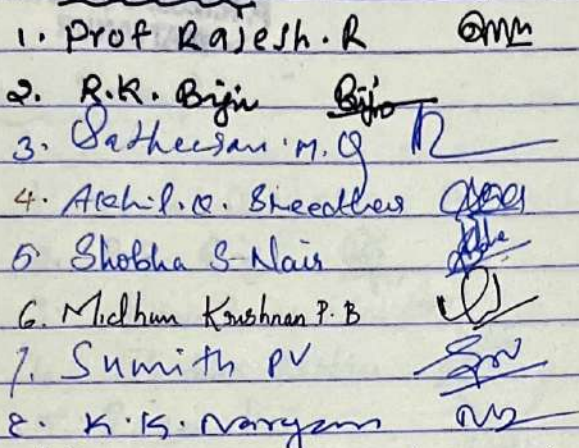 1. Prof Rajesh.R
2. R.K. Bijin Bijin
3. Satheesan.M.G
4. Akhil.K. Sreedhar
5 Shobha S-Nair
6. Midhun Krishnan P.B
7. Sumith PV
8. K.K. Narayanan